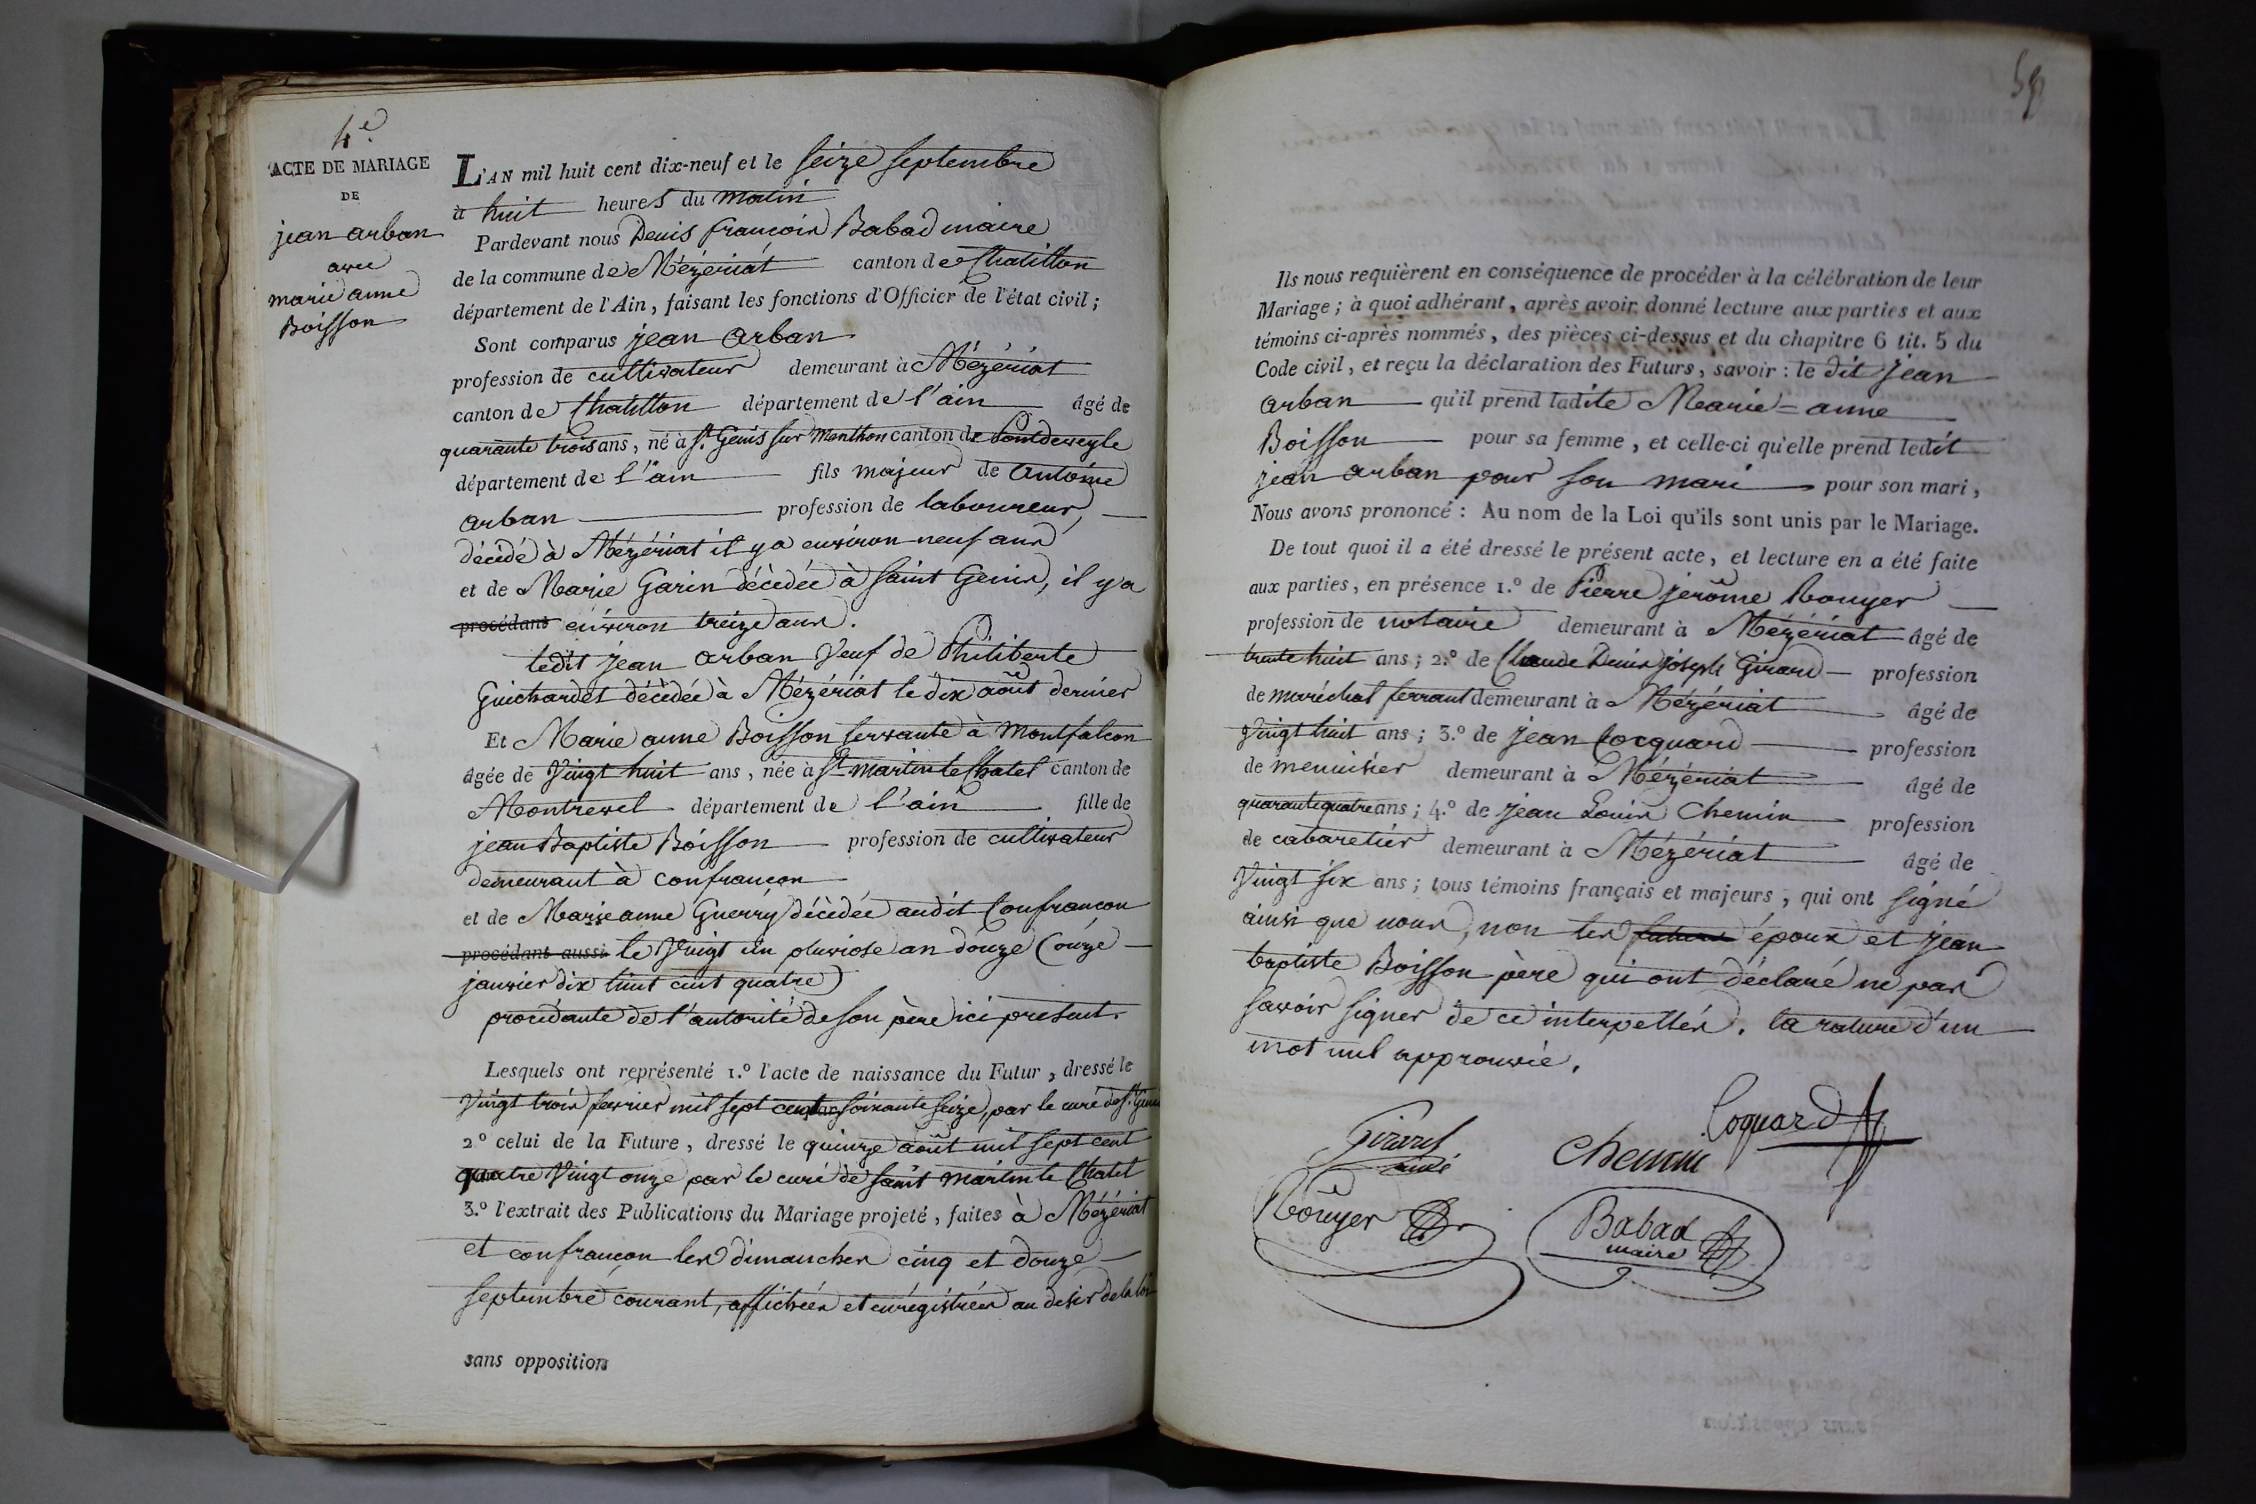 4e
ACTE DE MARIAGE
DE
jean arban
avec
marie anne
Boisson
L'AN mil huit cent dix-neuf et le seize septembre
à huit heures du matin
Pardevant nous Denis françois Babad maire
de la commune de Mézériat canton de Chatillon
département de l'Ain, faisant les fonctions d'Officier de l'état civil;
Sont comparus jean arban
profession de cultivateur demeurant à Mézériat
canton de Chatillon département de l'ain âgé de
quarante trois ans, né à St. Genis sur Menthon canton de Pontdeveyle
département de l'ain fils majeur de Antoine
arban profession de laboureur,
décédé à Mézériat il y a environ neuf ans
et de Marie Garin décèdée à saint Genis, il y a
procédant environ treize ans.
ledit jean arban veuf de Philiberte
Guichardet décèdée à Mézériat le dix août dernier
Et Marie anne Boisson servante à Montfalcon
âgée de vingt huit ans, née à St. martin le Chatel canton de
Montrevel département de l'ain fille de
jean Baptiste Boisson profession de cultivateur
demeurant à confrançon
et de Marieanne Guerry décèdée audit Confrançon
procédant aussi le vingt un pluviose an douze (onze
janvier dix huit cent quatre)
procédante de l'autorité de son père ici présent.
Lesquels ont représenté 1.º l'acte de naissance du Futur, dressé le
vingt trois fevrier mil sept cent soixante seize, par le curé de St. Genis
2º celui de la Future, dressé le quinze août mil sept cent
quatre vingt onze par le curé de saint martin le Chatel
3.º l'extrait des Publications du Mariage projeté, faites à Mézériat
et confrançon les dimanches cinq et douze
septembre courant, affichées et enrégistrées au desir de la loi
sans opposition
Ils nous requièrent en conséquence de procéder à la célébration de leur
Mariage; à quoi adhérant, après avoir donné lecture aux parties et aux
témoins ci-après nommés, des pièces ci-dessus et du chapitre 6 tit. 5 du
Code civil, et reçu la déclaration des Futurs, savoir: le dit jean
arban qu'il prend ladite Marie=anne
Boisson pour sa femme, et celle-ci qu'elle prend ledit
jean arban pour son mari pour son mari,
Nous avons prononcé: Au nom de la Loi qu'ils sont unis par le Mariage.
De tout quoi il a été dressé le présent acte, et lecture en a été faite
aux parties, en présence 1.º de Pierre jerôme Rouyer
profession de notaire demeurant à Mézériat âgé de
trente huit ans; 2.º de Claude Denis joseph Girard profession
de maréchal ferrant demeurant à Mézériat âgé de
vingt huit ans; 3.º de jean Cocquard profession
de menuisier demeurant à Mézériat âgé de
quarante quatre ans; 4.º de jean Louis Chemin profession
de cabaretier demeurant à Mézériat âgé de
vingt six ans; tous témoins français et majeurs, qui ont signé
ainsi que nous, non les futurs époux et jean
baptiste Boisson père qui ont déclaré ne pas
savoir signer de ce interpellés. la rature d'un
mot nul approuvée.
Coquard
Girard
Chemin
Rouyer
Babad
maire